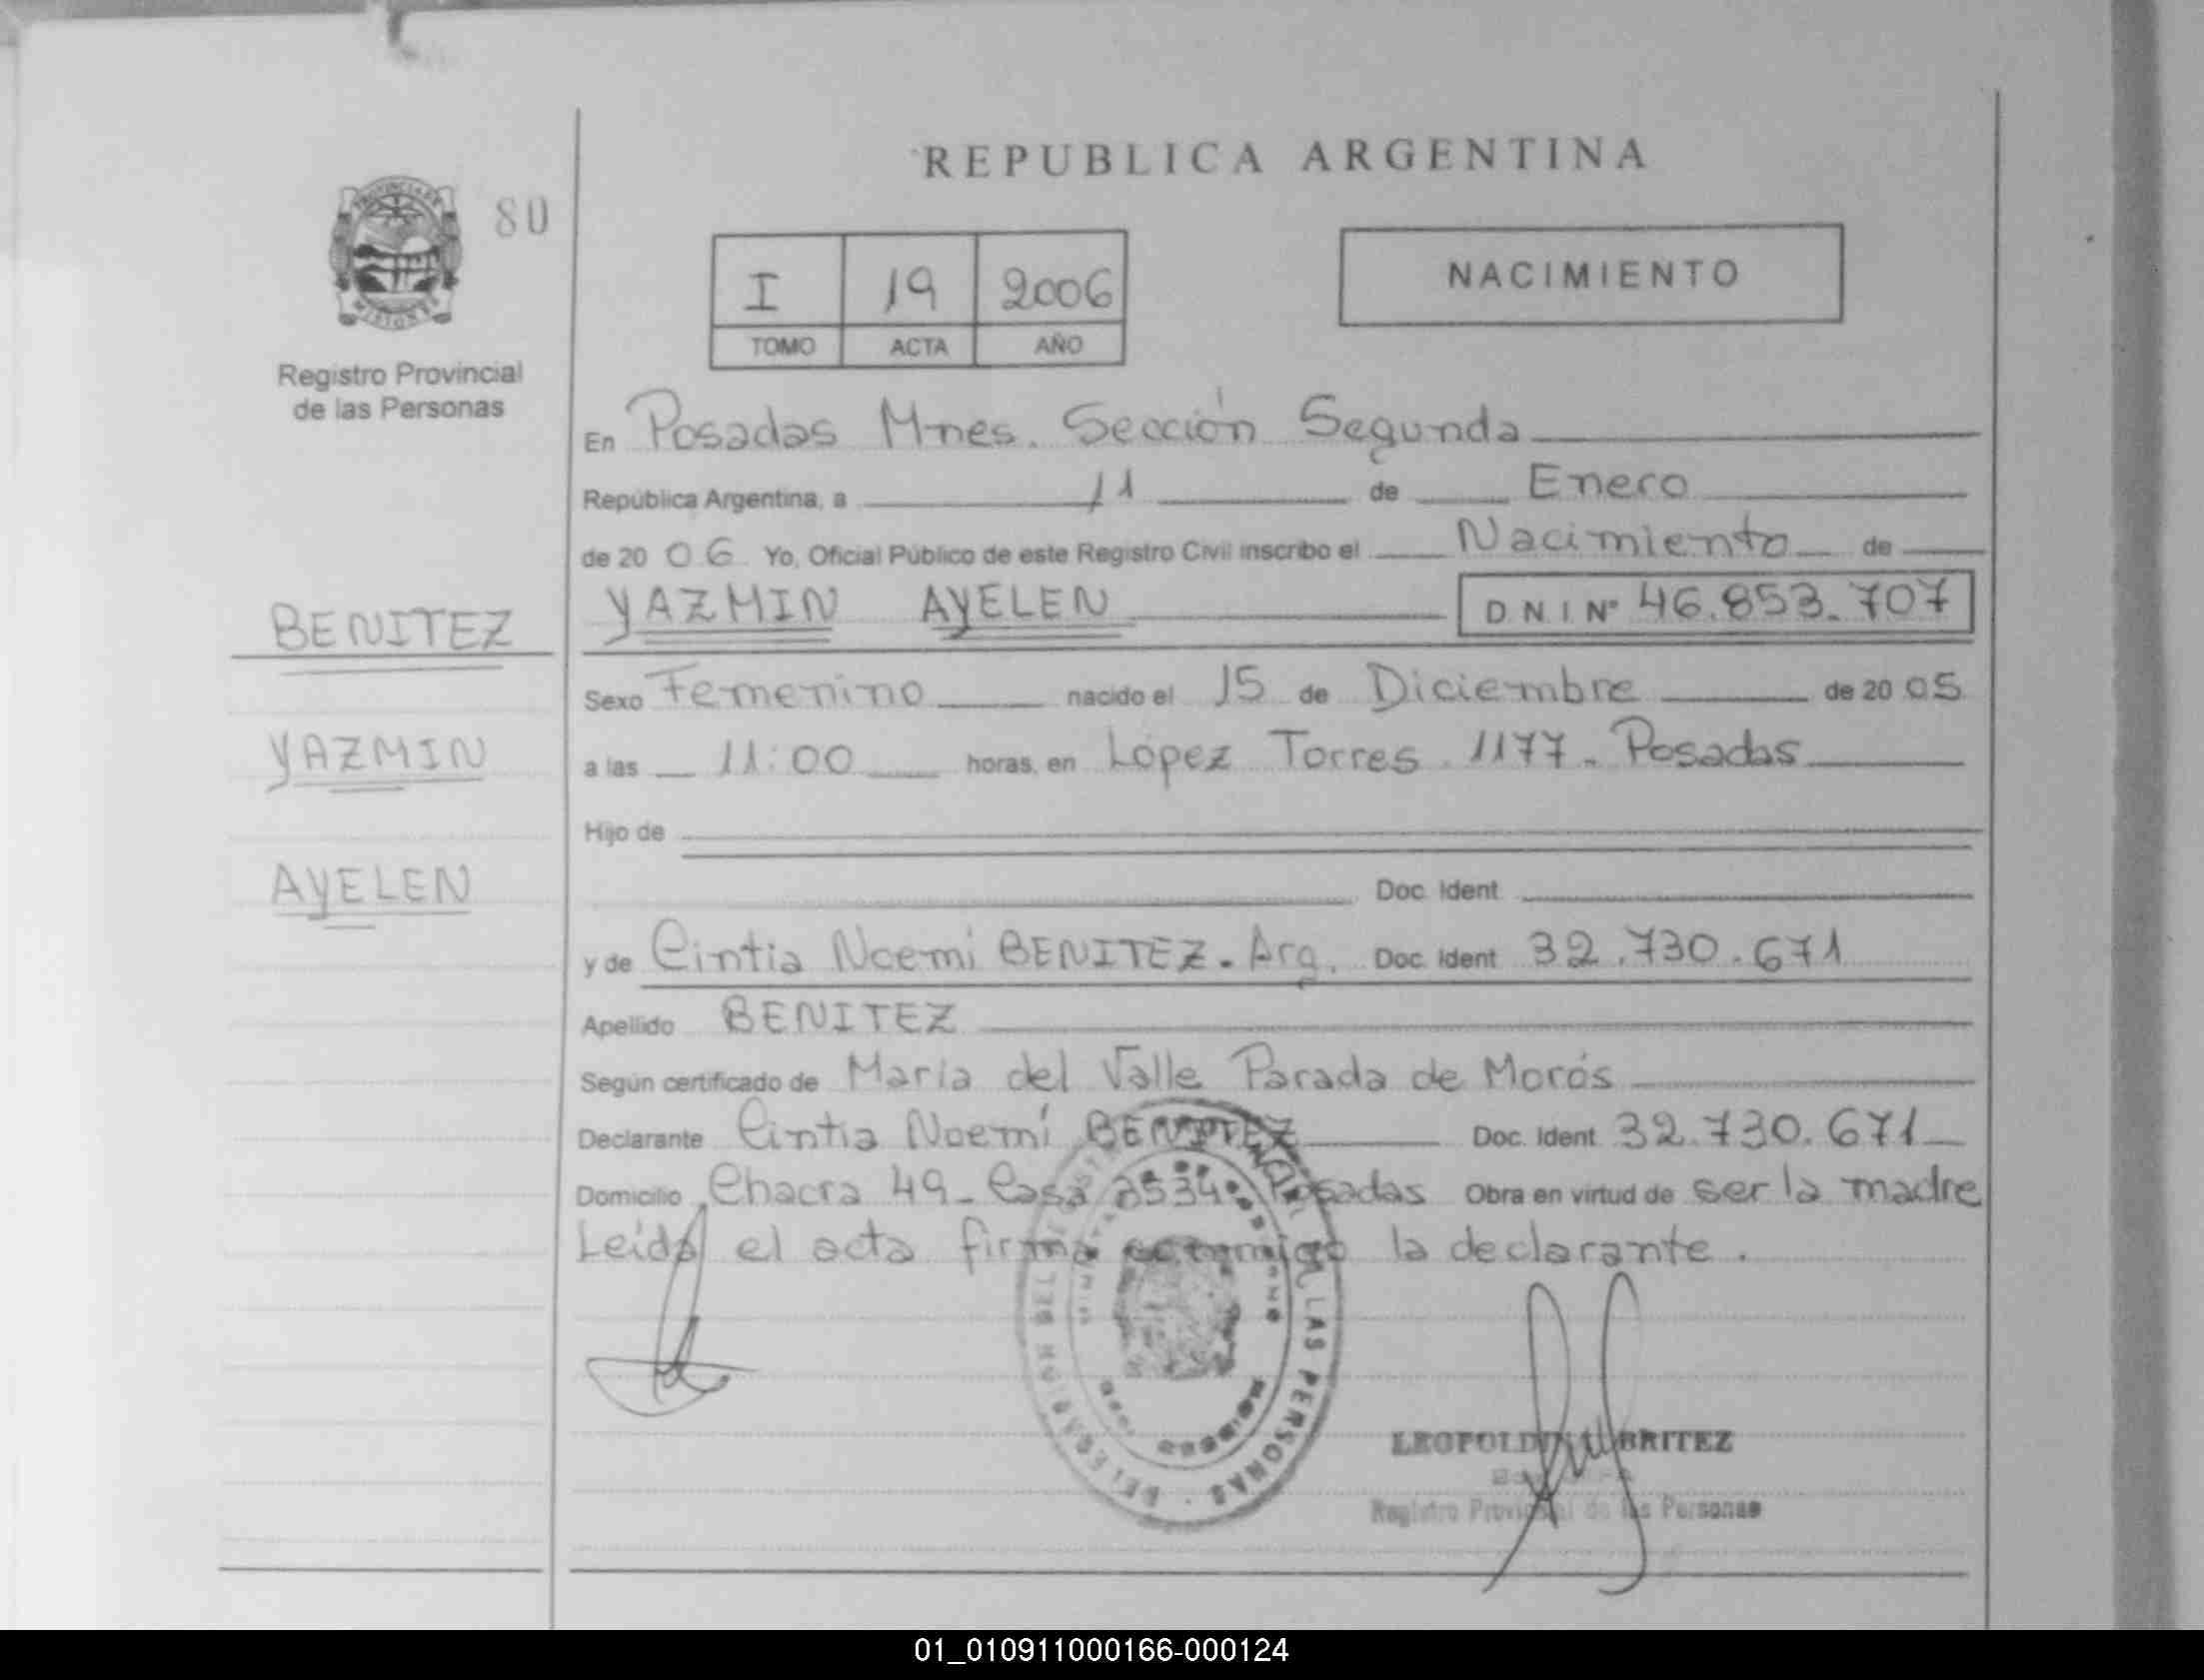 REPUBLICA ARGENTINA
PROVINCIA DE
MISIONES
80
Registro Provincial
de las Personas
I 19 2006
TOMO ACTA AÑO
NACIMIENTO
En Posadas Mnes. Sección Segunda
República Argentina, a 11 de Enero
de 20 06 Yo, Oficial Público de este Registro Civil inscribo el Nacimiento de
BENITEZ
YAZMIN
AYELEN
YAZMIN AYELEN D N I Nº 46.853.707
Sexo Femenino nacido el 15 de Diciembre de 20 05
a las 11:00 horas, en López Torres 1177 - Posadas
Hijo de
Doc. Ident.
y de Cintia Noemí BENITEZ - Arg. Doc. Ident 32.730.671
Apellido BENITEZ
Según certificado de María del Valle Parada de Morás
Declarante Cintia Noemí BENITEZ Doc. Ident 32.730.671
Domicilio Chacra 49 - Casa Posadas Obra en virtud de ser la madre
Leída el acta firma conmigo la declarante.
LAS PERSONAS
BRITEZ
Registro Provincial de las Personas
01_010911000166-000124